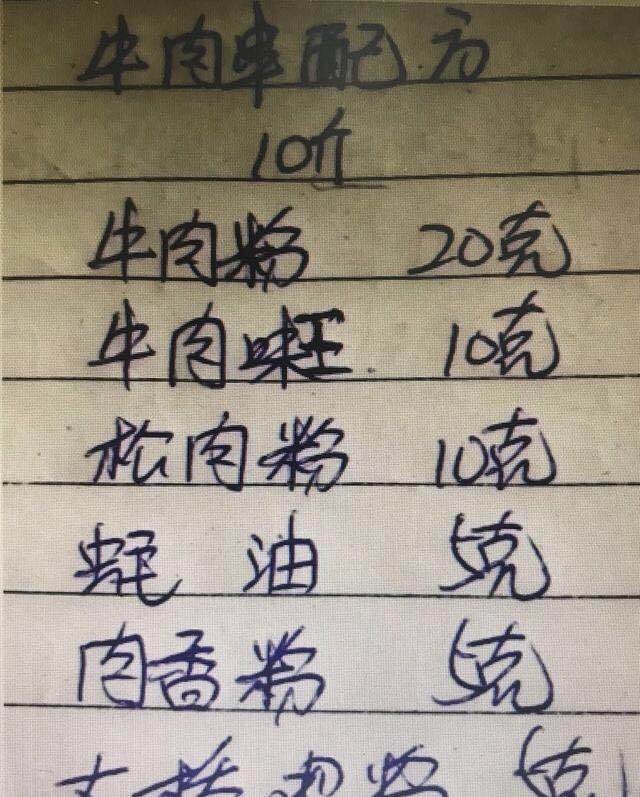 牛肉串配方
10斤
牛肉粉 20克
牛肉味王 10克
松肉粉 10克
蚝油 5克
肉香粉 5克
5克